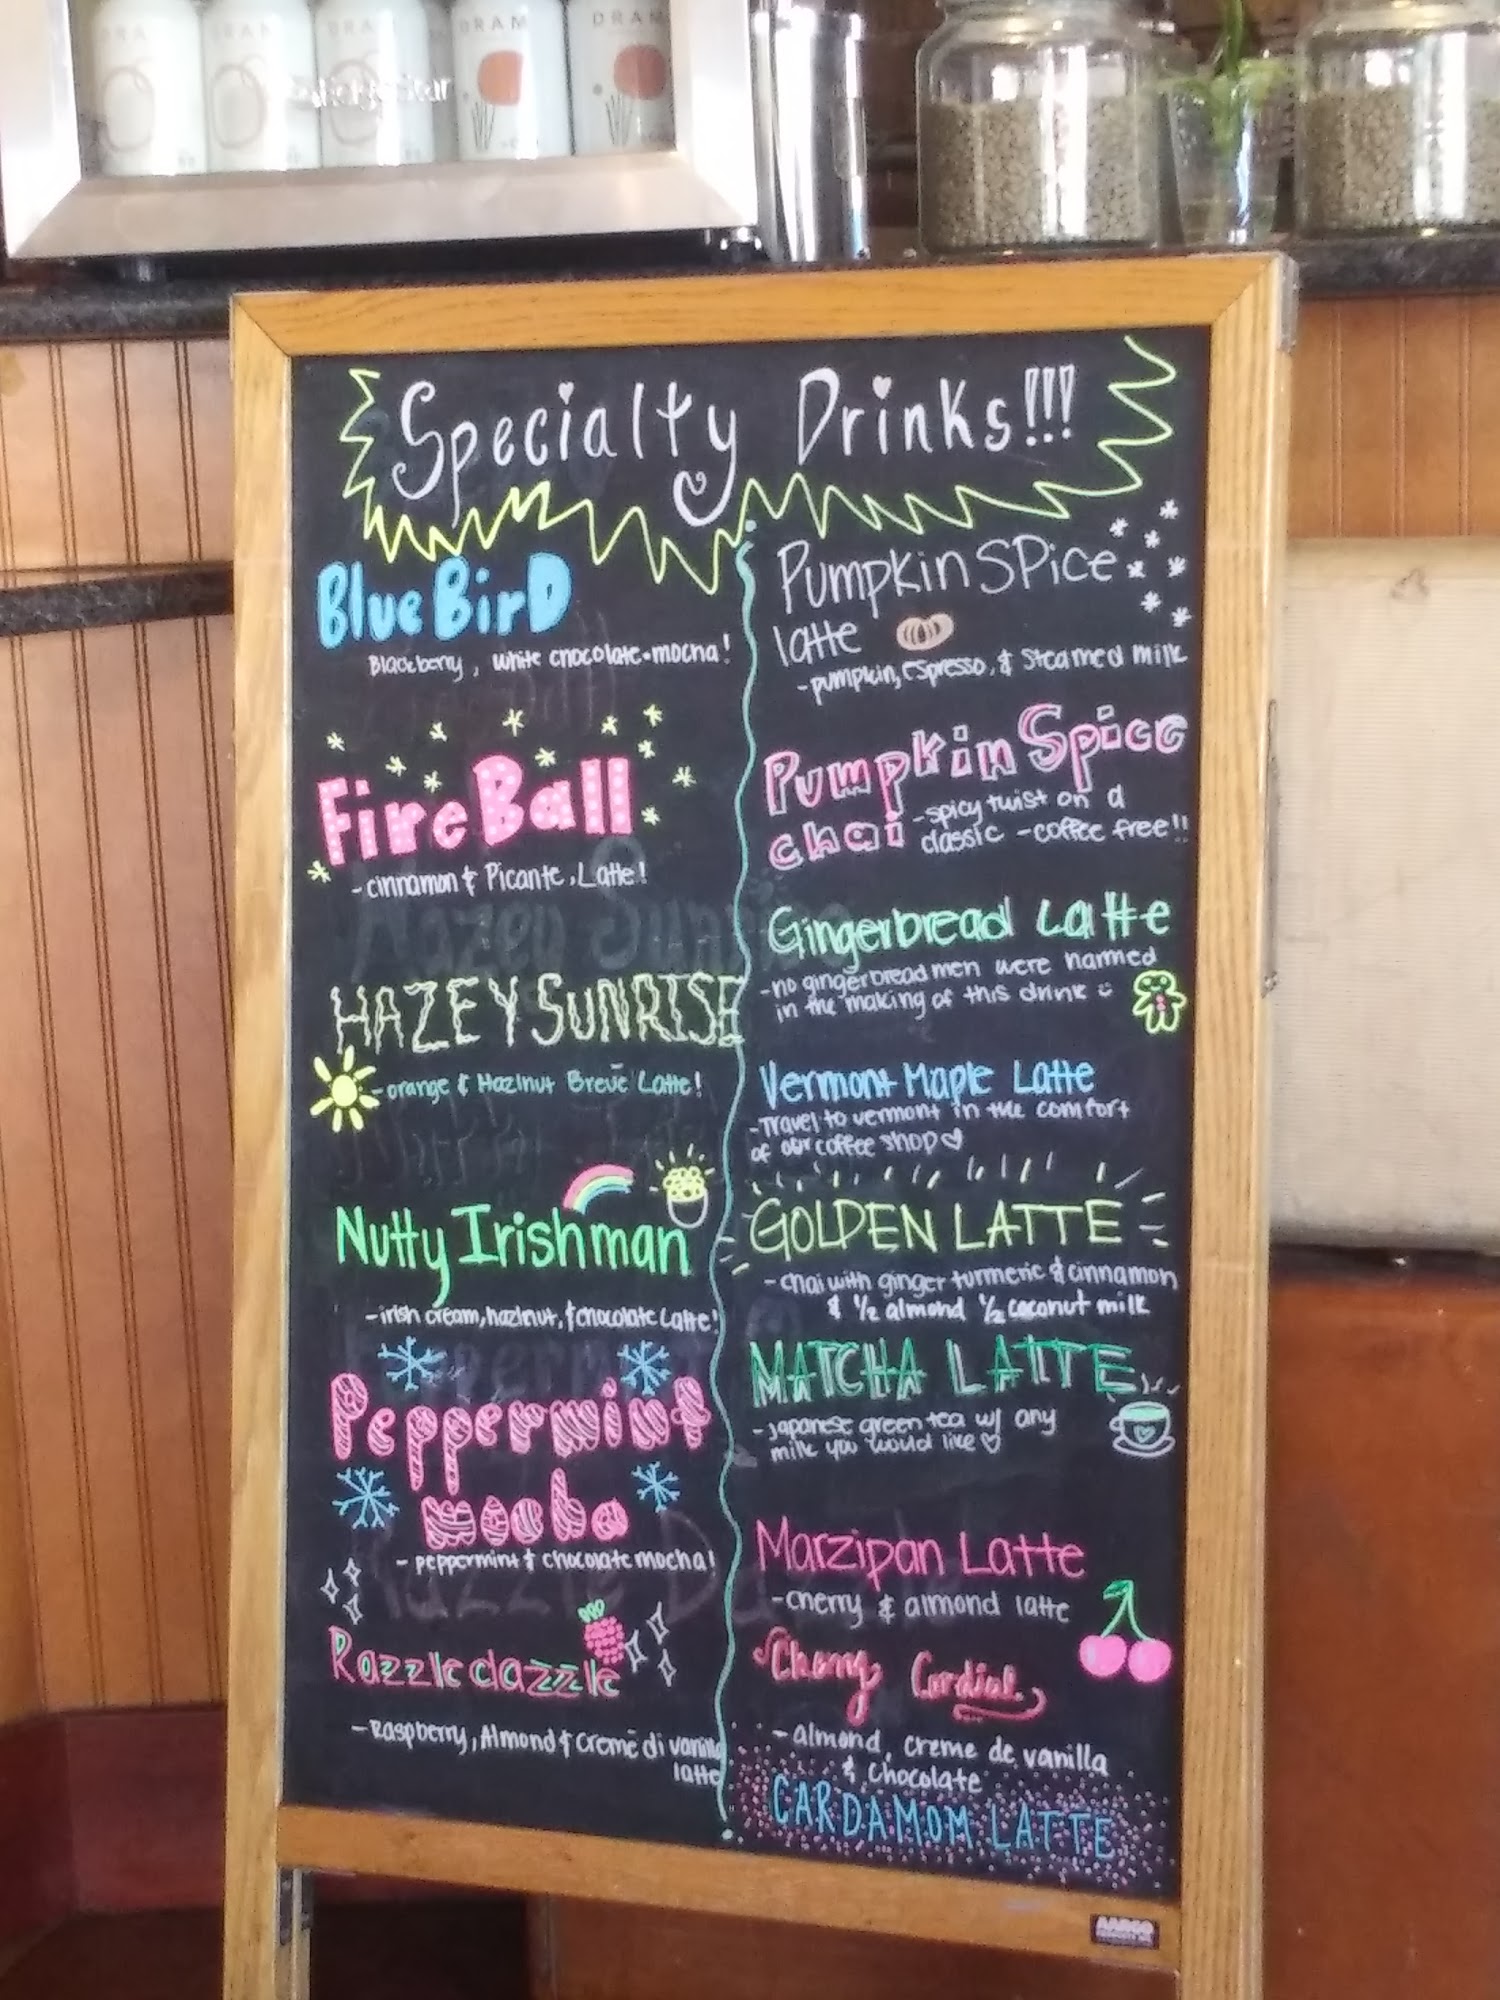 DRAM
DRAM
DRAM
DRAM
Specialty Drinks!!!
BlueBirD
Blackberry, white chocolate•mocha!
FireBall
-cinnamon & Picante, Latte!
HAZEY SUNRISE
-orange & Hazlnut Brevē Latte!
Nutty Irishman
-irish cream, hazlnut, & chocolate Latte!
Peppermint
mocha
- peppermint & chocolate mocha!
Razzle dazzle
-Raspberry, Almond & cremē di vanilla
latte
PumpkinSPice
latte
-pumpkin, espresso, & steamed milk
Pumpkin Spice
chai -spicy twist on a
classic -coffee free!!
Gingerbread Latte
-no gingerbread men were narmed
in the making of this drink
Vermont Maple Latte
-Travel to vermont in the comfort
of our coffee shop
GOLDEN LATTE
-chai with ginger turmeric & cinnamon
& 1/2 almond 1/2 coconut milk
MATCHA LATTE
-Japanese green tea w/ any
milk you would like
Marzipan Latte
-cherry & almond latte
Cherry Cordial
-almond, creme de vanilla
& chocolate
CARDAMOM LATTE
AARCO